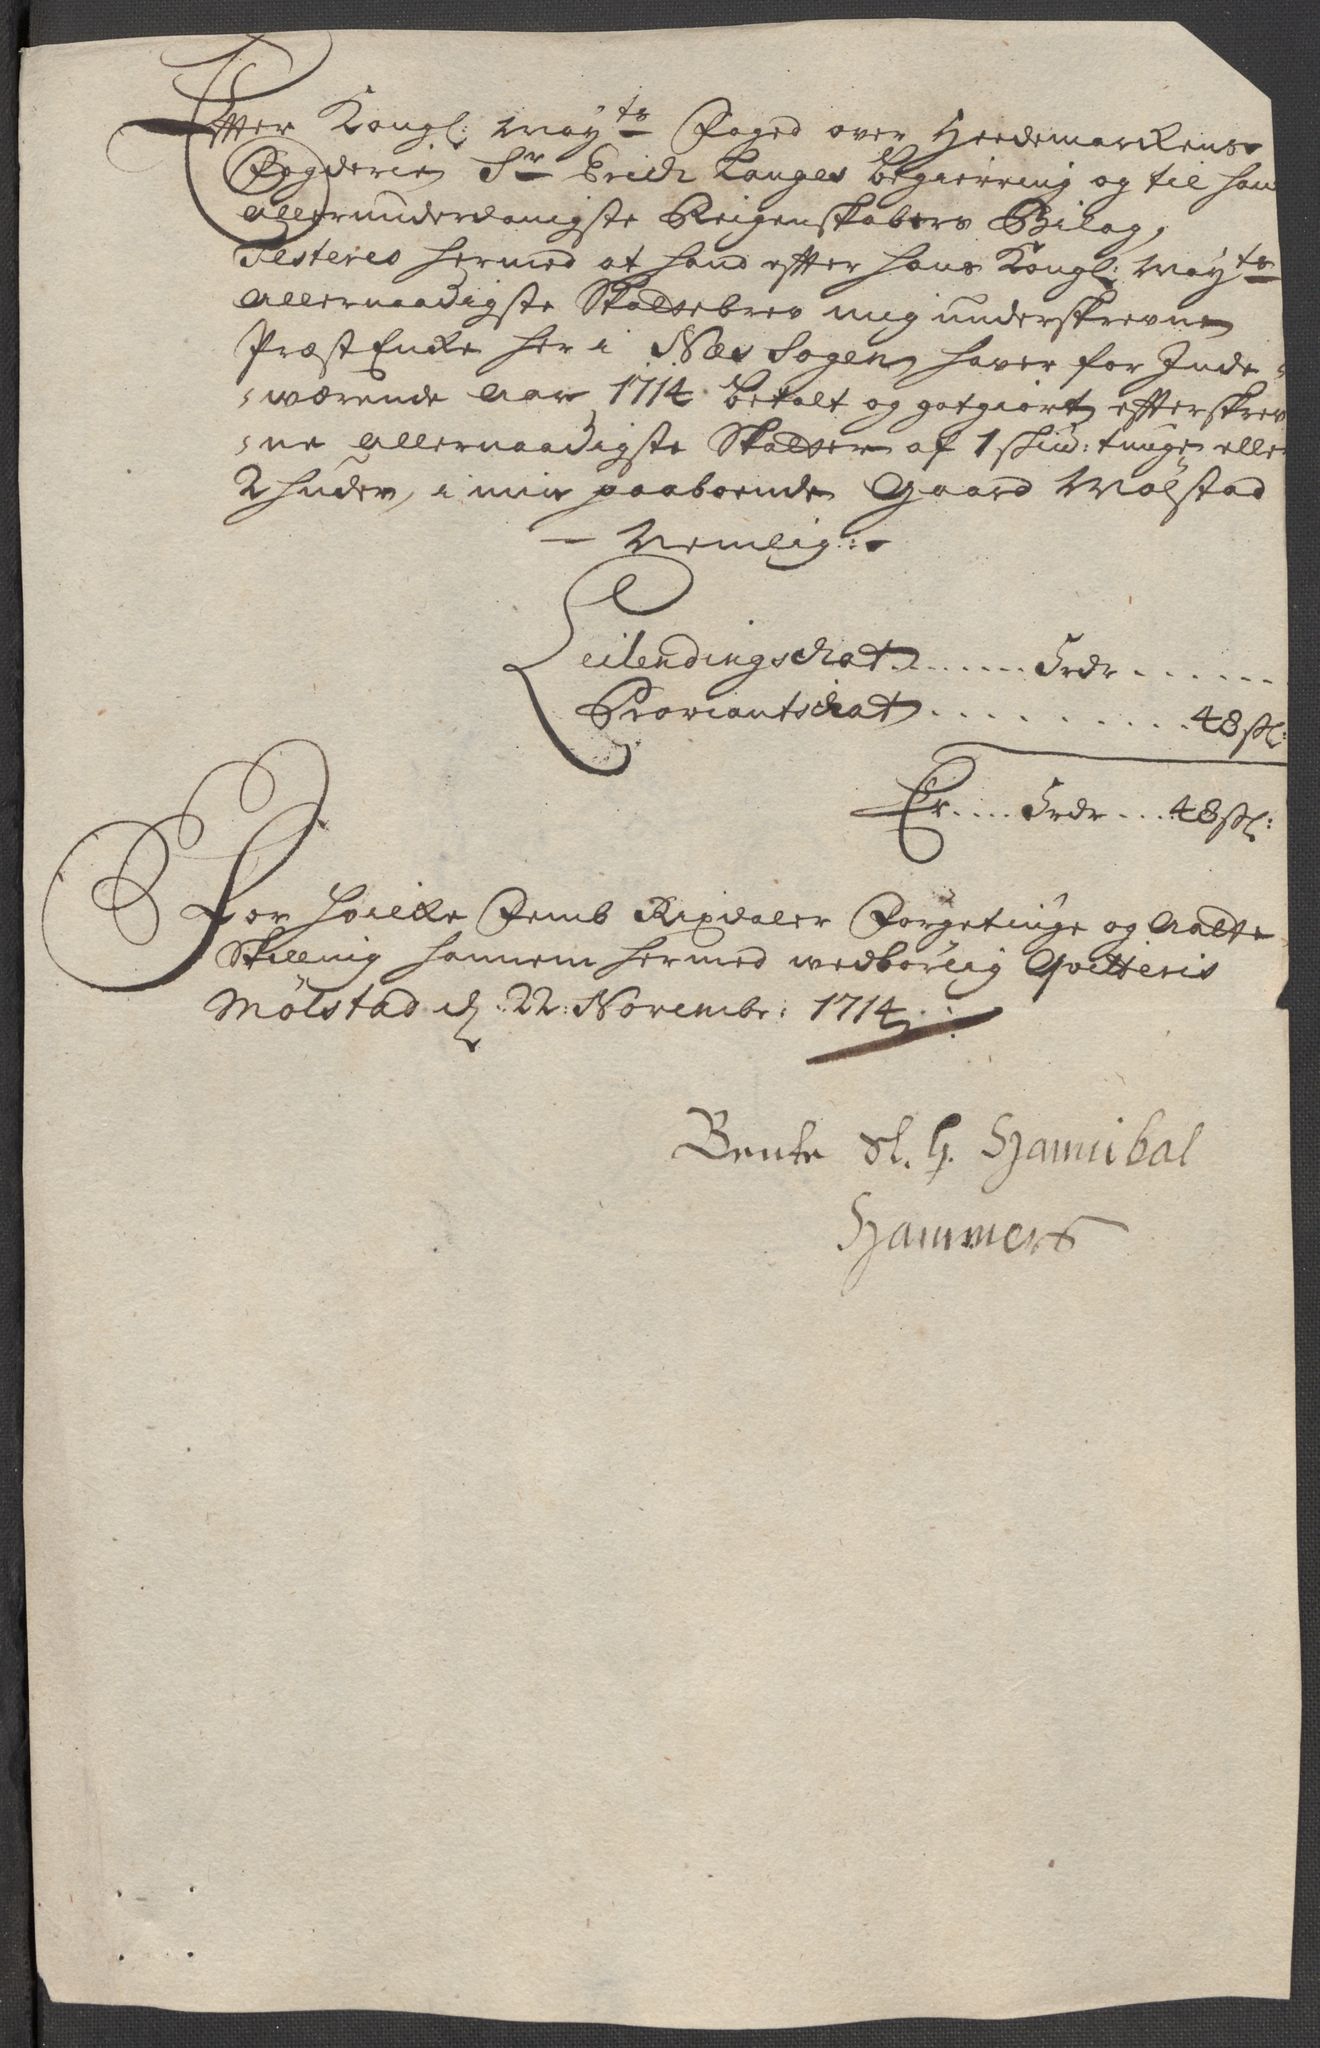 Effter Kongl: May:ts Foged over Heedemarckens
Fogderie Sr Erich Langes begierring og til hans
allerunderdanigste Reigenskabers Bilag,
Testeres hermed at hand effter hans Kongl: May:ts
allernaadigste Skattebrev mig underskrevne
Præst Encke her i Næs Sogen haver for Inde-
-værende Aar 1714 betalt og gotgiort efterskrev-
-ne allernaadigste Skatter af 1 skiud: tunge eller
2 huder, i min paaboende Gaard Mølstad
Nemlig:
Leilendingschat ....... 5 rdr ......
Proviantschat .......... 48 sk:
Er .... 5 rdr ... 48 sk:
For hvilke Femb Rixdaler Forgetiuge og Aatte
Skilling hannem hermed wedbørlig Qvitteris
Mølstad d. 22: Novembr: 1714
Bente Sl. H. Hannibal
Hammers